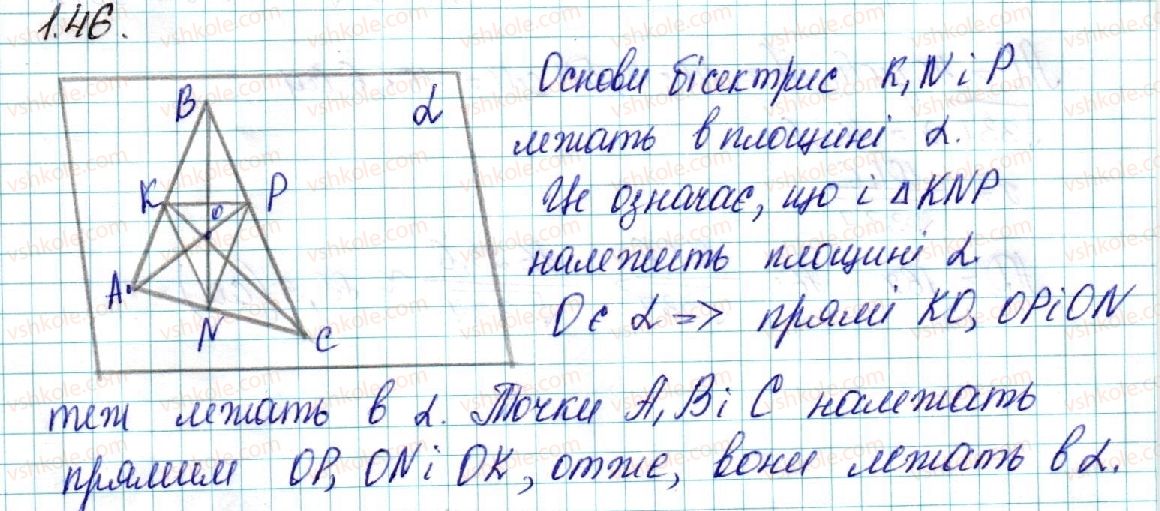 1.46.
Основи бісектрис K, N і P
лежать в площині α.
Це означає, що і ΔKNP
належить площині α.
O є α => прямі KO, OP і ON
теж лежать в α. Точки A, B і C належать
прямим OP, ON і OK, отже, вони лежать в α.
B
α
K
P
O
A
N
C